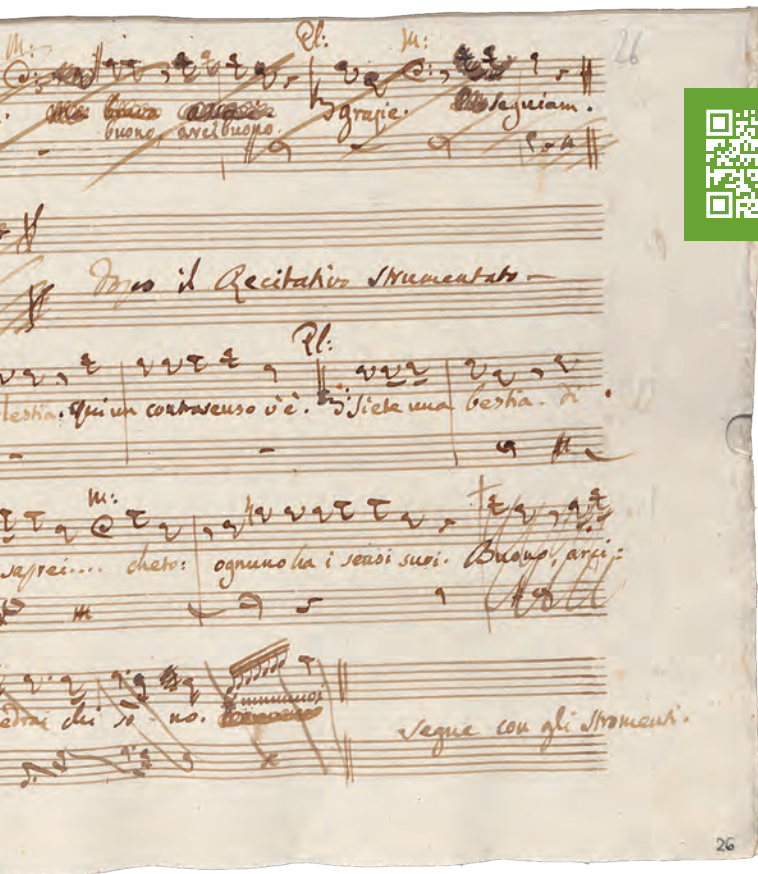 M: Pl: M: 26
buono, arcibuono. grazie. seguiam.
Dopo il Recitativo strumentato
Pl:
lestia. Qui un contrasenso v'è. Siete una bestia. di
M:
saprei.... cheto: ognuno ha i sensi suoi. Buono, arci=
edrai chi sò - no.
segue con gli stromenti.
26